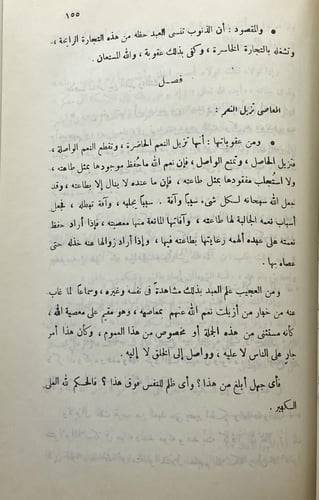 ١٥٥
• والمقصود : أن الذنوب تنسى العبد حظه من هذه التجارة الرابحة ،
وتشغله بالتجارة الخاسرة ، وكفى بذلك عقوبة ، والله المستعان .
فصــل
المعاصى تزيل النعم :
• ومن عقوباتها : أنها تزيل النعم الحاضرة ، وتقطع النعم الواصلة ،
فتزيل الحاصل ، وتمنع الواصل ، فإن نعم الله ماحُفظ موجودها بمثل طاعته ،
ولا استُجلب مفقودها بمثل طاعته ، فإن ما عنده لا ينال إلا بطاعته ، وقد
جعل الله سبحانه لكل شىء سبباً وآفة . سبباً يجلبه ، وآفة تبطله ، فجعل
أسباب نعمه الجالبة لها طاعته ، وآفاتها المانعة منها معصيته ، فإذا أراد حفظ
نعمته على عبده ألهمه رعايتها بطاعته فيها ، وإذا أراد زوالها عنه خذله حتى
عصاه بها .
ومن العجيب علم العبد بذلك مشاهدة فى نفسه وغيره ، وسماعاً لما غاب
عنه من أخبار من أزيلت نعم الله عنهم بمعاصيه ، وهو مقيم على معصية الله ،
كأنه مستثنى من هذه الجملة أو مخصوص من هذا العموم ، وكأن هذا أمر
جارٍ على الناس لا عليه ، وواصل إلى الخلق لا إليه .
فأى جهل أبلغ من هذا ؟ وأى ظلم للنفس فوق هذا ؟ فالحكم لله العلى
الكبير .